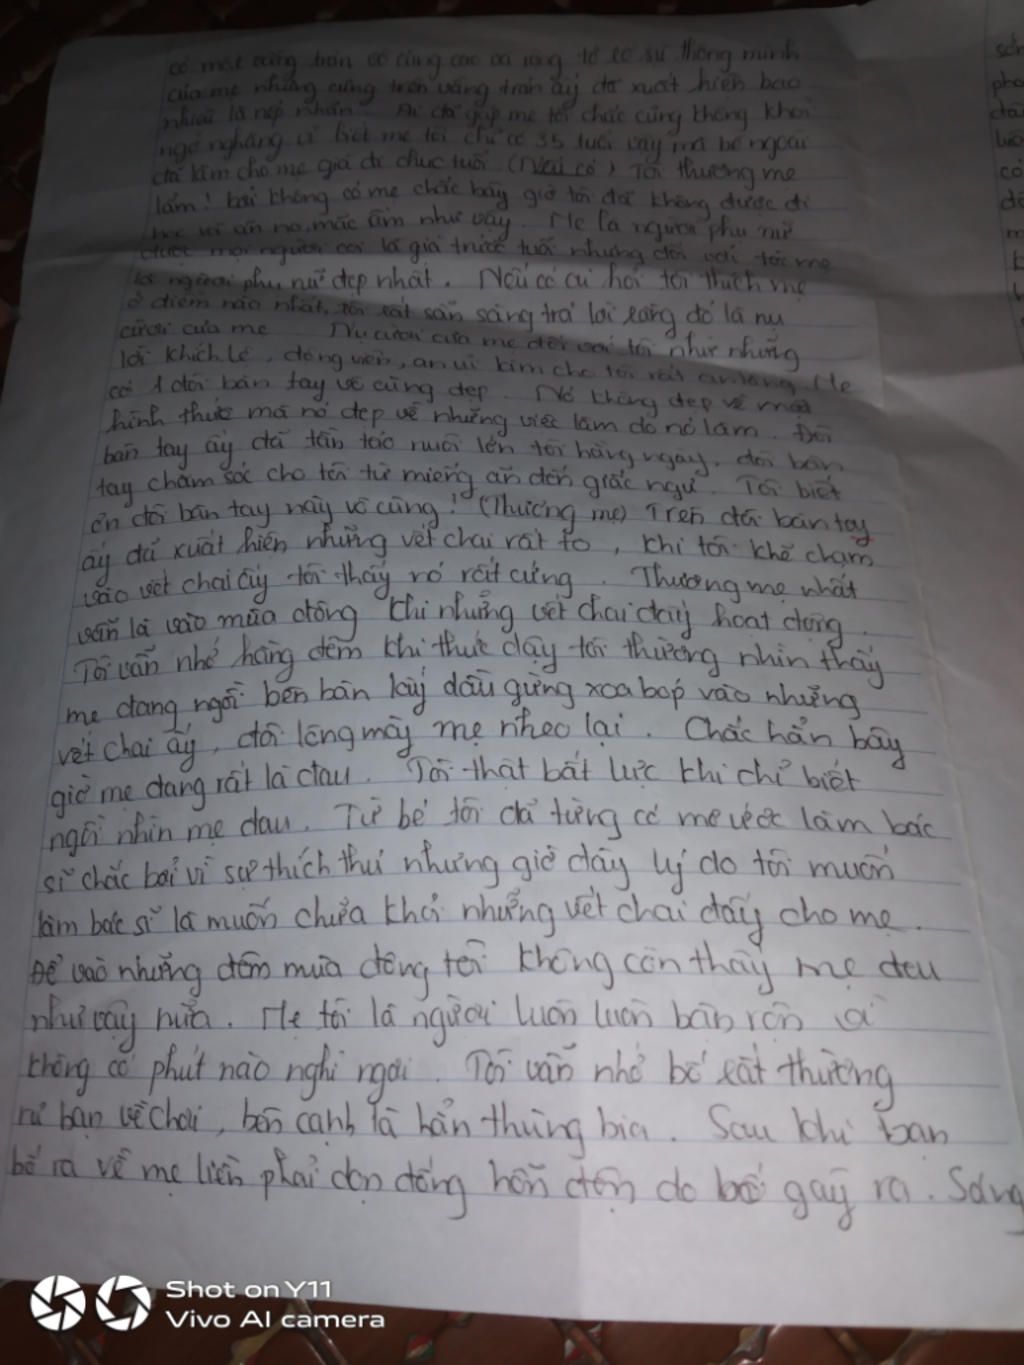 có một vầng trán vô cùng cao và rộng tỏ rõ sự thông minh
của mẹ nhưng cũng trên vầng trán ấy đã xuất hiện bao
nhiêu là nếp nhăn. Ai đã gặp mẹ tôi chắc cũng không khỏi
ngỡ ngàng vì biết mẹ tôi chỉ có 35 tuổi vậy mà bề ngoài
đã làm cho mẹ già đi chục tuổi (Nếu có) Tôi thương mẹ
lắm! bởi không có mẹ chắc bây giờ tôi đã không được đi
học và ăn no, mặc ấm như vậy. Mẹ là người phụ nữ
được mọi người coi là già trước tuổi nhưng đối với tôi mẹ
là người phụ nữ đẹp nhất. Nếu có ai hỏi tôi thích mẹ
ở điểm nào nhất, tôi rất sẵn sàng trả lời rằng đó là nụ
cười của mẹ Nụ cười của mẹ đối với tôi như những
lời khích lệ, động viên, an ủi làm cho tôi rất an lòng. Mẹ
có 1 đôi bàn tay vô cùng đẹp. Nó không đẹp về mặt
hình thức mà nó đẹp về những việc làm do nó làm. Đôi
bàn tay ấy đã tần tảo nuôi lớn tôi hằng ngày, đôi bàn
tay chăm sóc cho tôi từ miếng ăn đến giấc ngủ. Tôi biết
ơn đôi bàn tay này vô cùng! (Thương mẹ) Trên đôi bàn tay
ấy đã xuất hiện những vết chai rất to, khi tôi khẽ chạm
vào vết chai ấy tôi thấy nó rất cứng. Thương mẹ nhất
vẫn là vào mùa đông khi những vết chai đấy hoạt động.
Tôi vẫn nhớ hằng đêm khi thức dậy tôi thường nhìn thấy
mẹ đang ngồi bên bàn lấy dầu gừng xoa bóp vào những
vết chai ấy, đôi lông mày mẹ nheo lại. Chắc hẳn bây
giờ mẹ đang rất là đau. Tôi thật bất lực khi chỉ biết
ngồi nhìn mẹ đau. Từ bé tôi đã từng có mơ ước làm bác
sĩ chắc bởi vì sự thích thú nhưng giờ đây lý do tôi muốn
làm bác sĩ là muốn chữa khỏi những vết chai đấy cho mẹ.
Để vào những đêm mùa đông tôi không còn thấy mẹ đau
như vậy nữa. Mẹ tôi là người luôn luôn bận rộn và
không có phút nào nghỉ ngơi. Tôi vẫn nhớ bố rất thường
rủ bạn về chơi, bên cạnh là hẳn thùng bia. Sau khi bạn
bố ra về mẹ liền phải dọn đống hỗn độn do bố gây ra. Sáng
Shot on Y11
Vivo AI camera